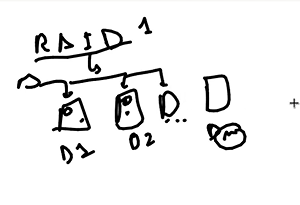 RAID 1
D1 D2 D... Dm